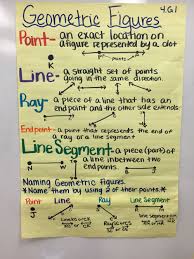 Geometric Figures
4.G.1
Point- an exact location on
a figure represented by a dot
points
Line- a straight set of points
going in the same direction
Ray- a piece of a line that has an
end point and the other side extends
Endpoint- a point that represents the end of
a ray or a line segment
Line Segment- a piece (part) of
a line inbetween two
end points
Naming Geometric Figures
*Name them by using 2 of their points*
Point
Line
Ray
Line Segment
N
J
K